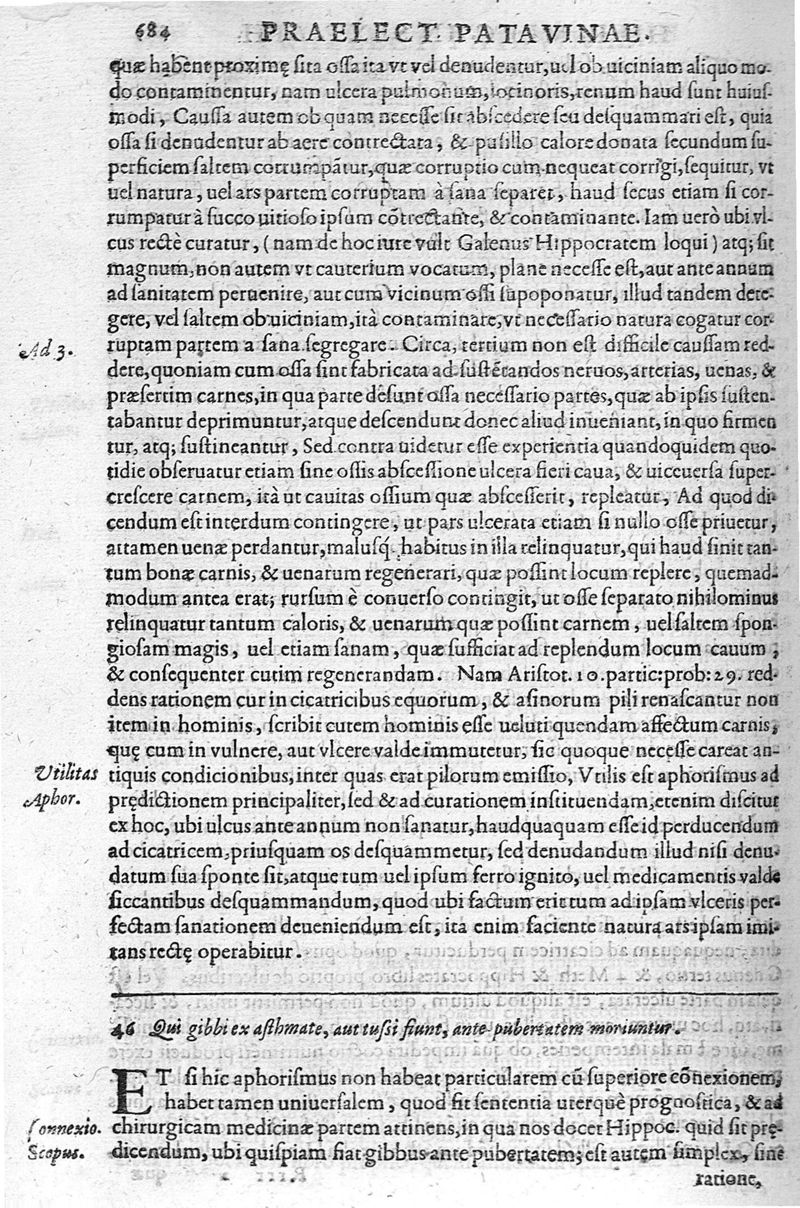 684 PRAELECT. PATAVINAE.
quæ habent proximę sita ossa ita vt vel denudentur, uel ob uiciniam aliquo mo-
do contaminentur, nam ulcera pulmonum, iocinoris, renum haud sunt huius-
modi, Caussa autem ob quam necesse sit abscedere seu desquammari est, quia
ossa si denudentur ab aere contrectata, & pusillo calore donata secundum su-
perficiem saltem corrumpãtur, quæ corruptio cum nequeat corrigi, sequitur, vt
uel natura, uel ars partem corruptam à sana separet, haud secus etiam si cor-
rumpatur à succo uitioso ipsum cõtrectante, & contaminante. Iam uerò ubi vl-
cus rectè curatur, (nam de hoc iure vult Galenus Hippocratem loqui) atq; sit
magnum, non autem vt cauterium vocatum, plane necesse est, aut ante annum
ad sanitatem peruenire, aut cum vicinum ossi supoponatur, illud tandem dete-
gere, vel saltem ob uiciniam, ità contaminare, vt necessario natura cogatur cor-
Ad 3.
ruptam partem a sana segregare. Circa, tertium non est difficile caussam red-
dere, quoniam cum ossa sint fabricata ad sustẽtandos neruos, arterias, uenas, &
præsertim carnes, in qua parte desunt ossa necessario partes, quæ ab ipsis susten-
tabantur deprimuntur, atque descendunt donec aliud inueniant, in quo firmen
tur, atq; sustineantur, Sed contra uidetur esse experientia quandoquidem quo-
tidie obseruatur etiam sine ossis abscessione ulcera fieri caua, & uiceuersa super-
crescere carnem, ità ut cauitas ossium quæ abscesserit, repleatur, Ad quod di-
cendum est interdum contingere, ut pars ulcerata etiam si nullo osse priuetur,
attamen uenæ perdantur, malusq́; habitus in illa relinquatur, qui haud sinit tan-
tum bonæ carnis, & uenarum regenerari, quæ possint locum replere, quemad-
modum antea erat; rursum è conuerso contingit, ut osse separato nihilominus
relinquatur tantum caloris, & uenarum quæ possint carnem, uel saltem spon-
giosam magis, uel etiam sanam, quæ sufficiat ad replendum locum cauum,
& consequenter cutim regenerandam. Nam Aristot. 10. partic: prob: 29. red-
dens rationem cur in cicatricibus equorum, & asinorum pili renascantur non
item in hominis, scribit cutem hominis esse ueluti quendam affectum carnis,
quę cum in vulnere, aut vlcere valde immutetur, sic quoque necesse careat an-
Utilitas
tiquis condicionibus, inter quas erat pilorum emissio, Vtilis est aphorismus ad
Aphor.
prędictionem principaliter, sed & ad curationem instituendam, etenim discitur
ex hoc, ubi ulcus ante annum non sanatur, haudquaquam esse id perducendum
ad cicatricem, priusquam os desquammetur, sed denudandum illud nisi denu-
datum sua sponte sit, atque tum uel ipsum ferro ignito, uel medicamentis valde
siccantibus desquammandum, quod ubi factum erit tum ad ipsam vlceris per-
fectam sanationem deueniendum est, ità enim faciente natura ars ipsam imi-
tans rectę operabitur.
46 Qui gibbi ex asthmate, aut tussi fiunt, ante pubertatem moriuntur.
ET si hic aphorismus non habeat particularem cũ superiore cõnexionem,
habet tamen uniuersalem, quod sit sententia uterquè prognostica, & ad
Connexio.
chirurgicam medicinæ partem attinens, in qua nos docet Hippoc. quid sit prę-
Scopus.
dicendum, ubi quispiam fiat gibbus ante pubertatem; est autem simplex, sine
ratione,